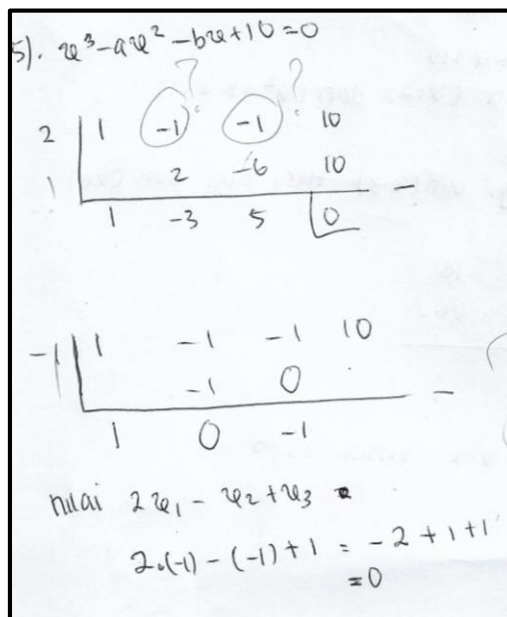 5). x³-ax²-bx+10=0
? ?
2 1 -1 -1 10
1 2 6 10 -
1 -3 5 0
-1 1 -1 -1 10
-1 0 -
1 0 -1
nilai 2x₁ - x₂ + x₃ =
2.(-1) - (-1) + 1 = -2 + 1 + 1
=0